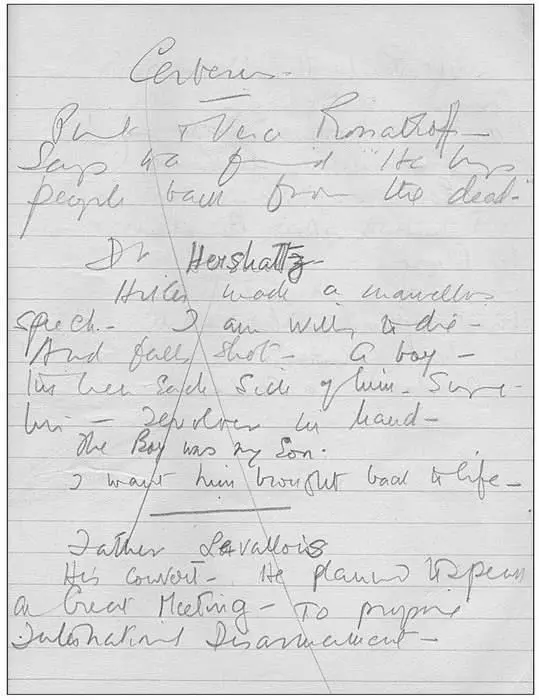 Cerberus.
Poirot & Vera Rossakoff —
Says to a friend "He brings
people back from the dead"
Dr Hershaltz
Hitler made a marvellous
speech — I am willing to die —
And falls shot — A boy —
two men each side of him —
— revolver in hand —
The Boy was my Son.
I want him brought back to life —
Father Lavallois
His convert — He planned to speak
a Great Meeting — To propose
International Disarmament —